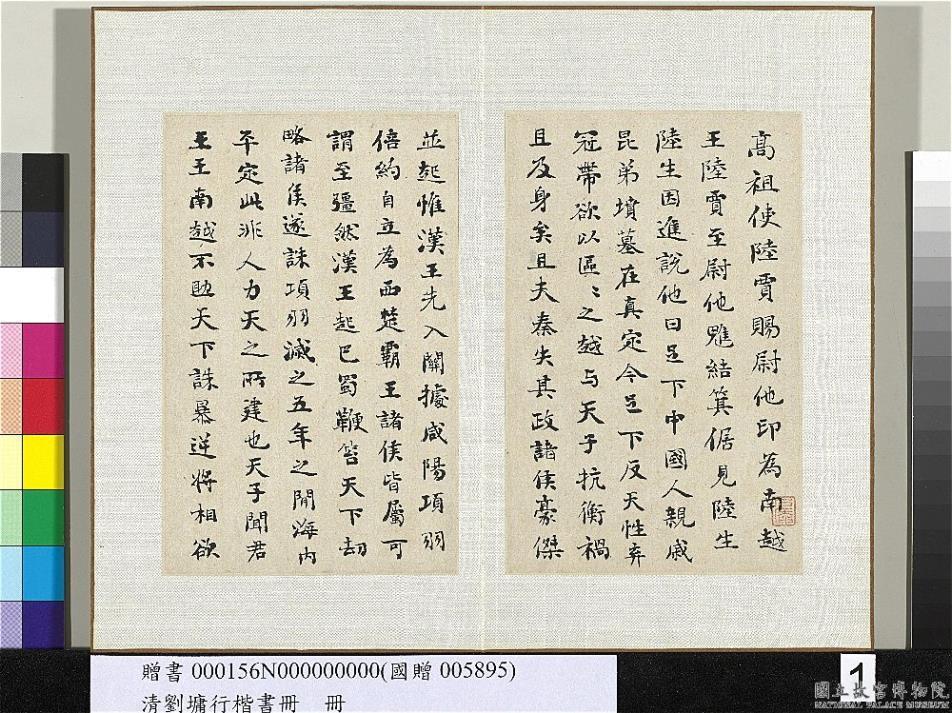 高祖使陸賈賜尉他印為南越
王陸賈至尉他魋結箕倨見陸生
陸生因進說他曰足下中國人親戚
昆弟墳墓在真定今足下反天性弃
冠帶欲以區〻之越与天子抗衡禍
且及身矣且夫秦失其政諸侯豪傑
並起惟漢王先入關據咸陽項羽
倍約自立為西楚霸王諸侯皆屬可
謂至彊然漢王起巴蜀鞭笞天下劫
略諸侯遂誅項羽滅之五年之間海內
平定此非人力天之所建也天子聞君
王王南越不助天下誅暴逆將相欲
贈書 000156N000000000(國贈 005895)
清劉墉行楷書冊 冊
1
國立故宮博物院
NATIONAL PALACE MUSEUM